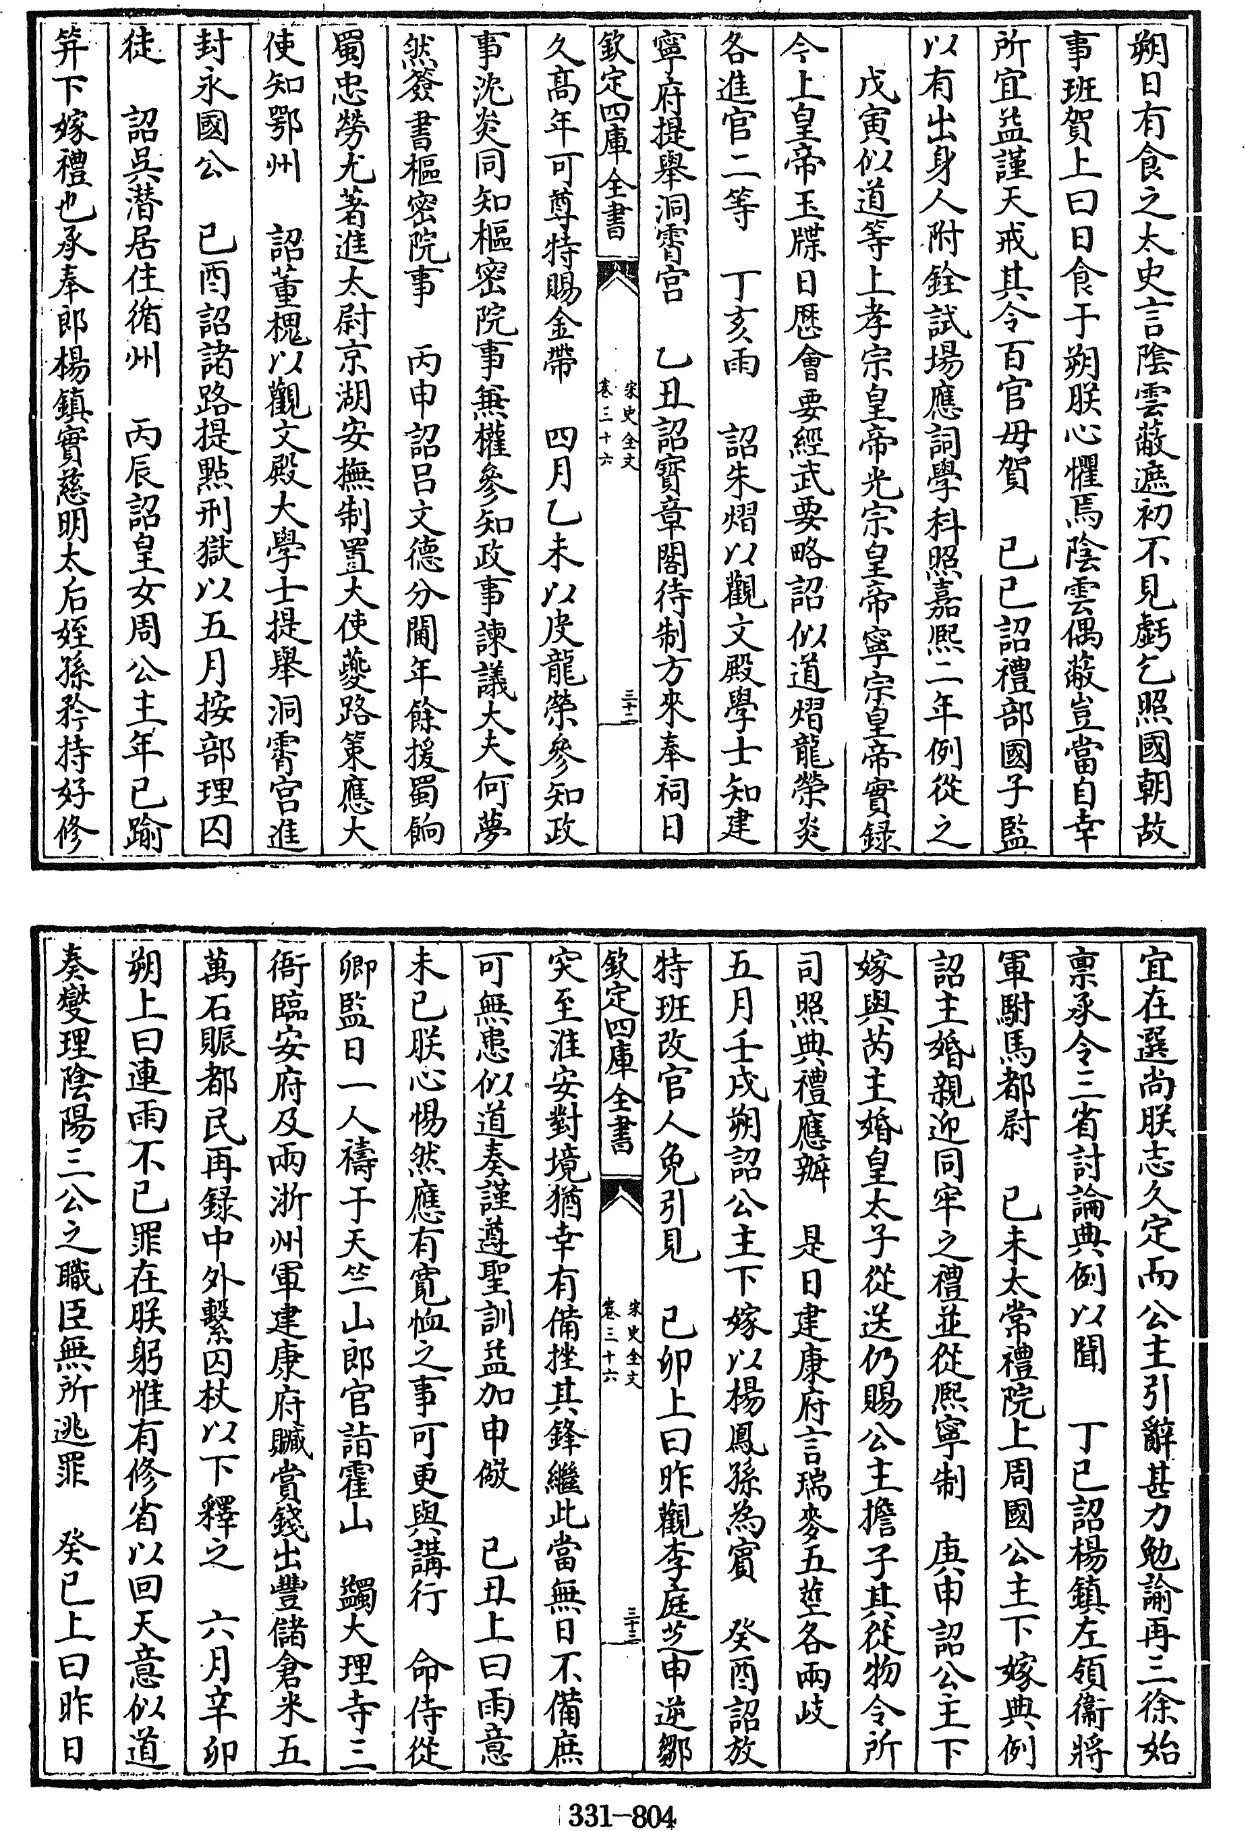 朔日有食之太史言陰雲蔽遮初不見虧乞照國朝故
事班賀上曰日食于朔朕心懼焉陰雲偶蔽豈當自幸
所宜益謹天戒其令百官毋賀　己巳詔禮部國子監
以有出身人附銓試場應詞學科照嘉熙二年例從之
戊寅似道等上孝宗皇帝光宗皇帝寧宗皇帝實録
今上皇帝玉牒日歷會要經武要略詔似道熠龍榮炎
各進官二等　丁亥雨　詔朱熠以觀文殿學士知建
寧府提舉洞霄宫　乙丑詔寳章閣待制方來奉祠日
欽定四庫全書
宋史全文
卷三十六
三十二
久高年可尊特賜金帶　四月乙未以皮龍榮參知政
事沈炎同知樞密院事無權參知政事諫議大夫何夢
然簽書樞密院事　丙申詔吕文德分閫年餘援蜀餉
蜀忠勞尤著進太尉京湖安撫制置大使夔路策應大
使知鄂州　詔董槐以觀文殿大學士提舉洞霄宫進
封永國公　己酉詔諸路提點刑獄以五月按部理囚
徒　詔吳潜居住循州　丙辰詔皇女周公主年已踰
笄下嫁禮也承奉郎楊鎮實慈明太后姪孫矜持好修
宜在選尚朕志久定而公主引辭甚力勉諭再三徐始
禀承令三省討論典例以聞　丁巳詔楊鎮左領衞將
軍駙馬都尉　己未太常禮院上周國公主下嫁典例
詔主婚親迎同牢之禮並從熙寧制　庚申詔公主下
嫁與芮主婚皇太子從送仍賜公主擔子其從物令所
司照典禮應辦　是日建康府言瑞麥五莖各兩歧
五月壬戌朔詔公主下嫁以楊鳳孫為賓　癸酉詔放
特班改官人免引見　己卯上曰昨觀李庭芝申逆鄒
欽定四庫全書
宋史全文
卷三十六
三十三
突至淮安對境猶幸有備挫其鋒繼此當無日不備庶
可無患似道奏謹遵聖訓益加申儆　己丑上曰雨意
未已朕心惕然應有寛恤之事可更與講行　命侍從
卿監日一人禱于天竺山郎官詣霍山　蠲大理寺三
衙臨安府及兩浙州軍建康府贓賞錢出豐儲倉米五
萬石賑都民再録中外繫囚杖以下釋之　六月辛卯
朔上曰連雨不已罪在朕躬惟有修省以回天意似道
奏燮理陰陽三公之職臣無所逃罪　癸巳上曰昨日
331-804